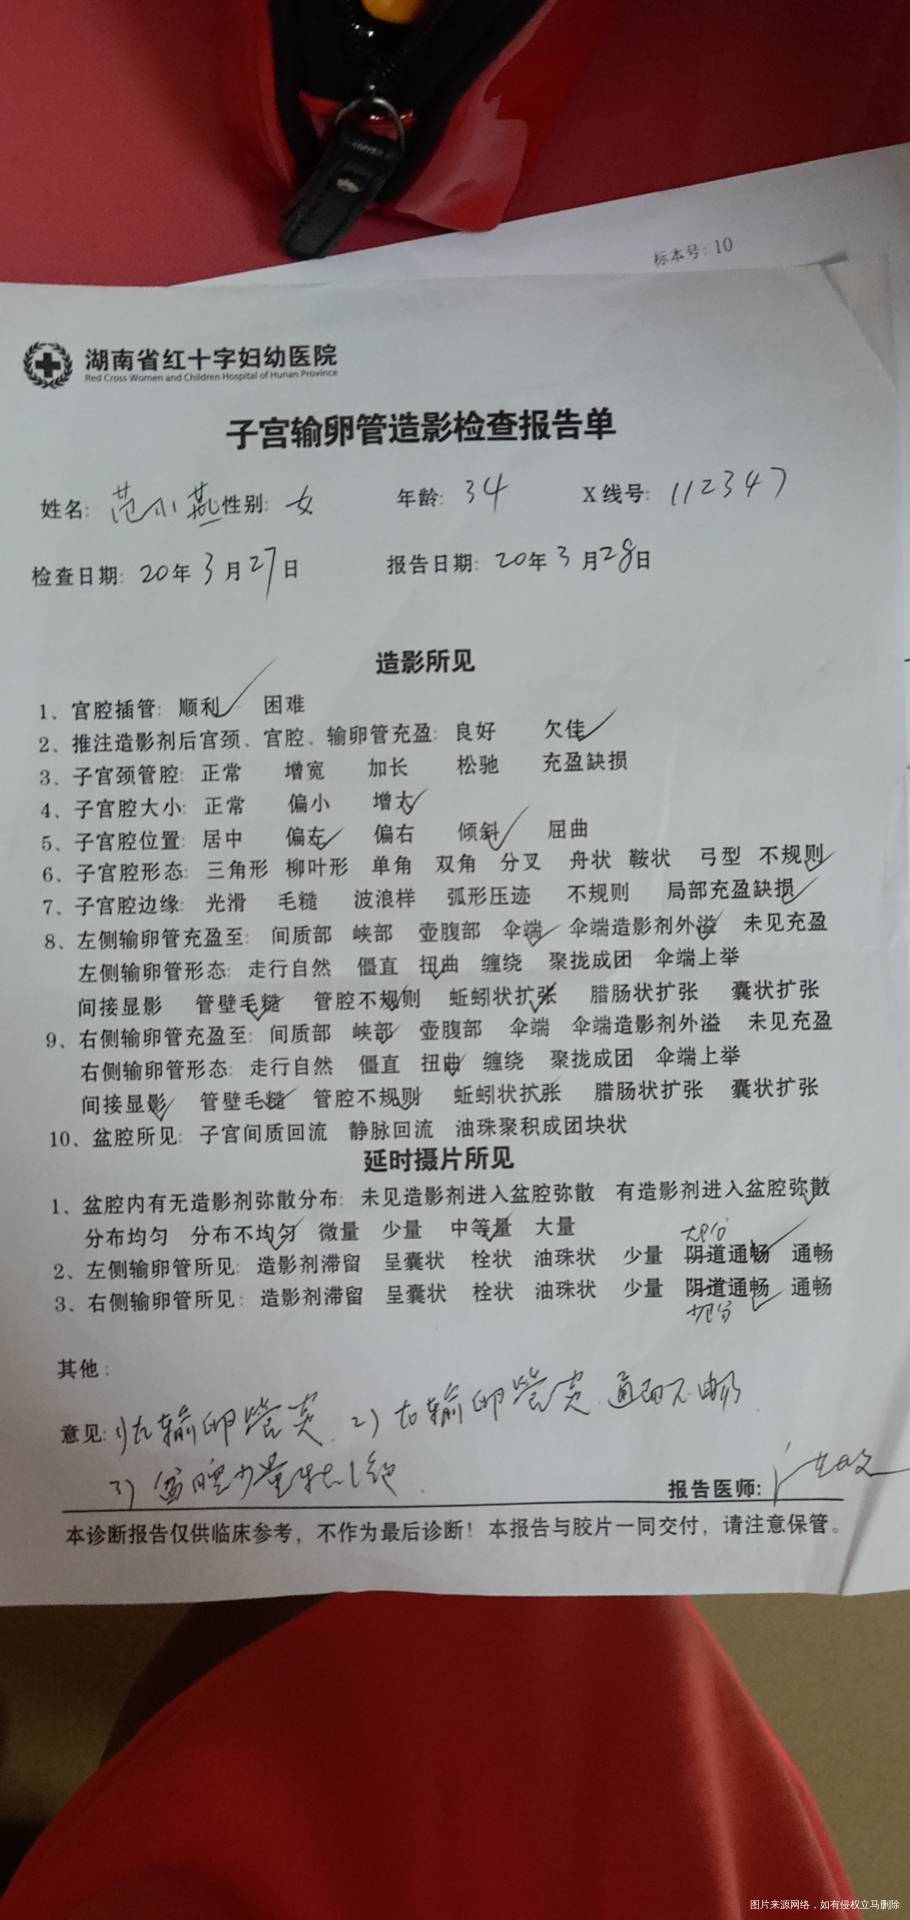 标本号: 10
湖南省红十字妇幼医院
Red Cross Women and Children Hospital of Hunan Province
子宫输卵管造影检查报告单
姓名: 范小燕 性别: 女 年龄: 34 X线号: 112347
检查日期: 20年3月27日 报告日期: 20年3月28日
造影所见
1、宫腔插管: 顺利✓ 困难
2、推注造影剂后宫颈、宫腔、输卵管充盈: 良好 欠佳✓
3、子宫颈管腔: 正常 增宽 加长 松驰 充盈缺损
4、子宫腔大小: 正常 偏小 增大✓
5、子宫腔位置: 居中 偏左✓ 偏右 倾斜✓ 屈曲
6、子宫腔形态: 三角形 柳叶形 单角 双角 分叉 舟状 鞍状 弓型 不规则✓
7、子宫腔边缘: 光滑 毛糙 波浪样 弧形压迹 不规则 局部充盈缺损✓
8、左侧输卵管充盈至: 间质部 峡部 壶腹部 伞端✓ 伞端造影剂外溢✓ 未见充盈
左侧输卵管形态: 走行自然 僵直 扭曲✓ 缠绕 聚拢成团 伞端上举
间接显影 管壁毛糙✓ 管腔不规则✓ 蚯蚓状扩张✓ 腊肠状扩张 囊状扩张
9、右侧输卵管充盈至: 间质部 峡部✓ 壶腹部 伞端 伞端造影剂外溢 未见充盈
右侧输卵管形态: 走行自然 僵直 扭曲✓ 缠绕 聚拢成团 伞端上举
间接显影✓ 管壁毛糙✓ 管腔不规则✓ 蚯蚓状扩张✓ 腊肠状扩张 囊状扩张
10、盆腔所见: 子宫间质回流 静脉回流 油珠聚积成团块状
延时摄片所见
1、盆腔内有无造影剂弥散分布: 未见造影剂进入盆腔弥散 有造影剂进入盆腔弥散✓
分布均匀 分布不均匀✓ 微量 少量 中等量✓ 大量
大部分
2、左侧输卵管所见: 造影剂滞留 呈囊状 栓状 油珠状 少量 阴道通畅✓ 通畅
3、右侧输卵管所见: 造影剂滞留 呈囊状 栓状 油珠状 少量 阴道通畅✓ 通畅
少部分
其他:
意见: 1)左输卵管炎 2)右输卵管炎 通而不畅
3)盆腔少量粘连
报告医师:
本诊断报告仅供临床参考，不作为最后诊断！本报告与胶片一同交付，请注意保管。
图片来源网络，如有侵权立马删除